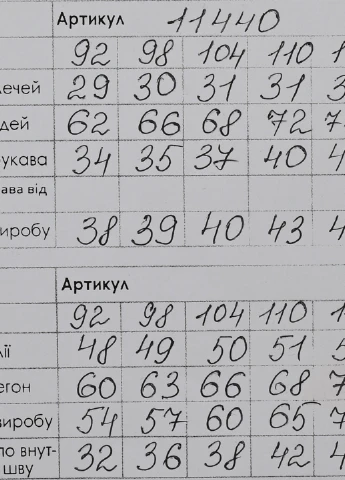 Артикул 11440
92 98 104 110 1
ечей 29 30 31 31 3
дей 62 66 68 72 7
укава 34 35 37 40 4
ава від
иробу 38 39 40 43 4
Артикул
92 98 104 110 1
лії 48 49 50 51 5
егон 60 63 66 68 7
виробу 54 57 60 65 7
по внут- шву 32 36 38 42 4